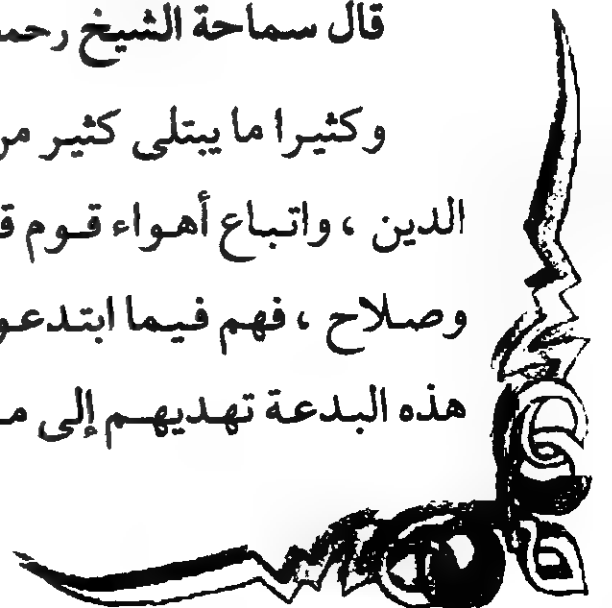 قال سماحة الشيخ رحمـ
وكثيرا ما يبتلى كثير مر
الدين ، واتباع أهواء قوم قـ
وصلاح ، فهم فيما ابتدعو
هذه البدعة تهديهم إلى مـ